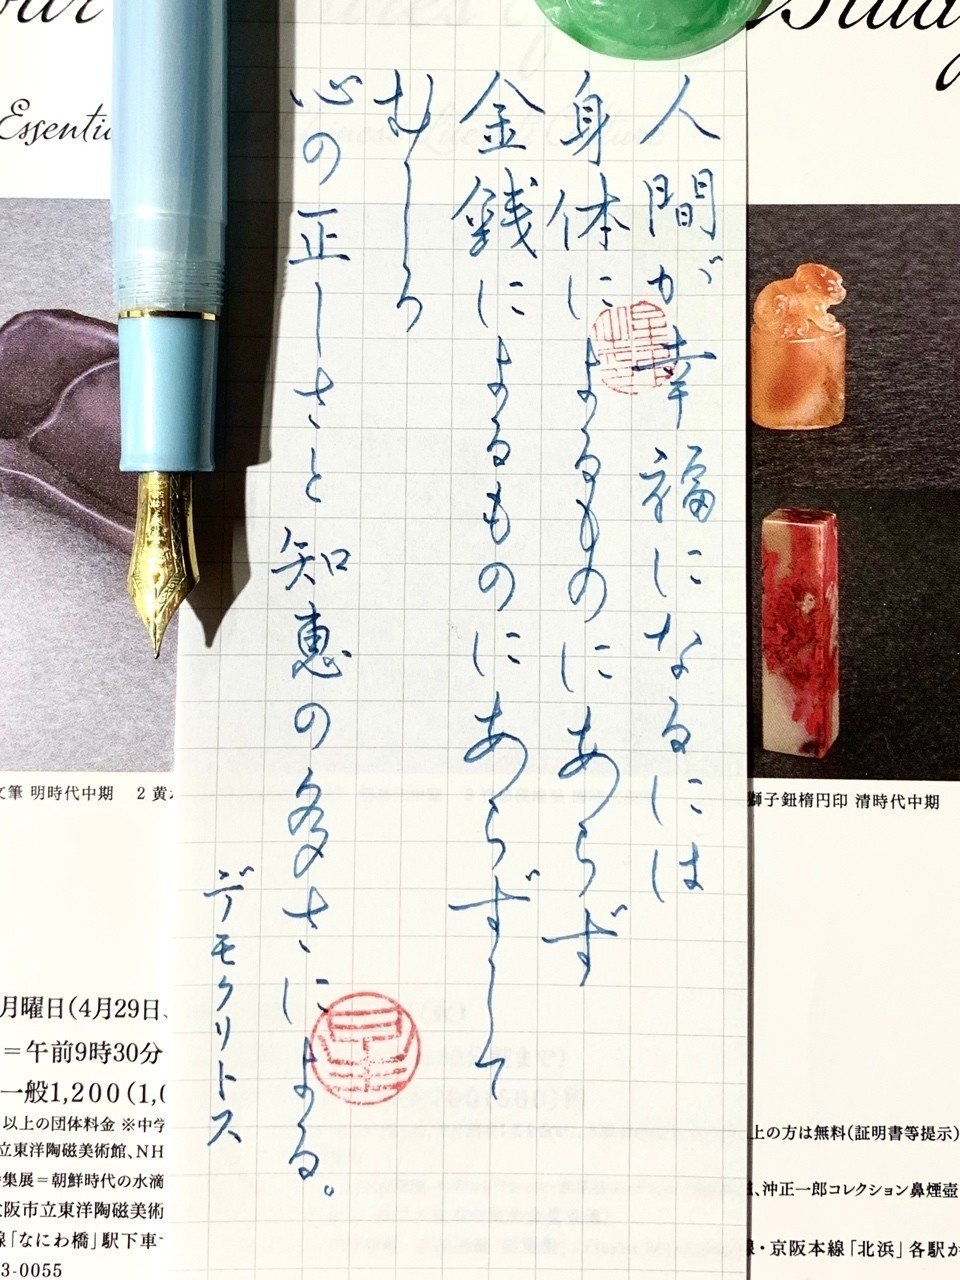 Essentia
人間が幸福になるには
身体によるものにあらず
金銭によるものにあらずして
むしろ
心の正しさと知恵の多さによる。
デモクリトス
文筆 明時代中期 2 黄
獅子鈕楕円印 清時代中期
月曜日(4月29日、
=午前9時30分
一般1,200(1,0
以上の団体料金 ※中学
立東洋陶磁美術館、NH
集展=朝鮮時代の水滴
大阪市立東洋陶磁美術
線「なにわ橋」駅下車
3-0055
上の方は無料(証明書等提示)
、沖正一郎コレクション鼻煙壺
線・京阪本線「北浜」各駅か